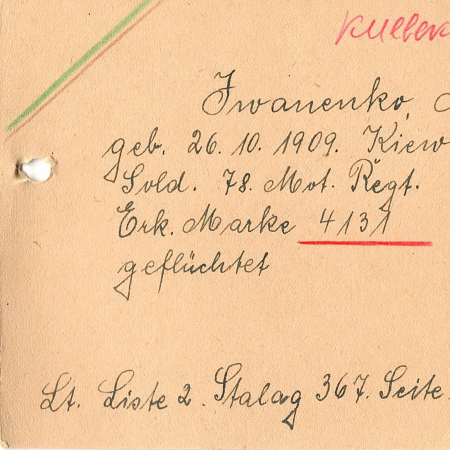 Iwanenko,
geb. 26. 10. 1909. Kiew
Sold. 78. Mot. Regt.
Erk. Marke 4131
geflüchtet
Lt. Liste 2. Stalag 367. Seite